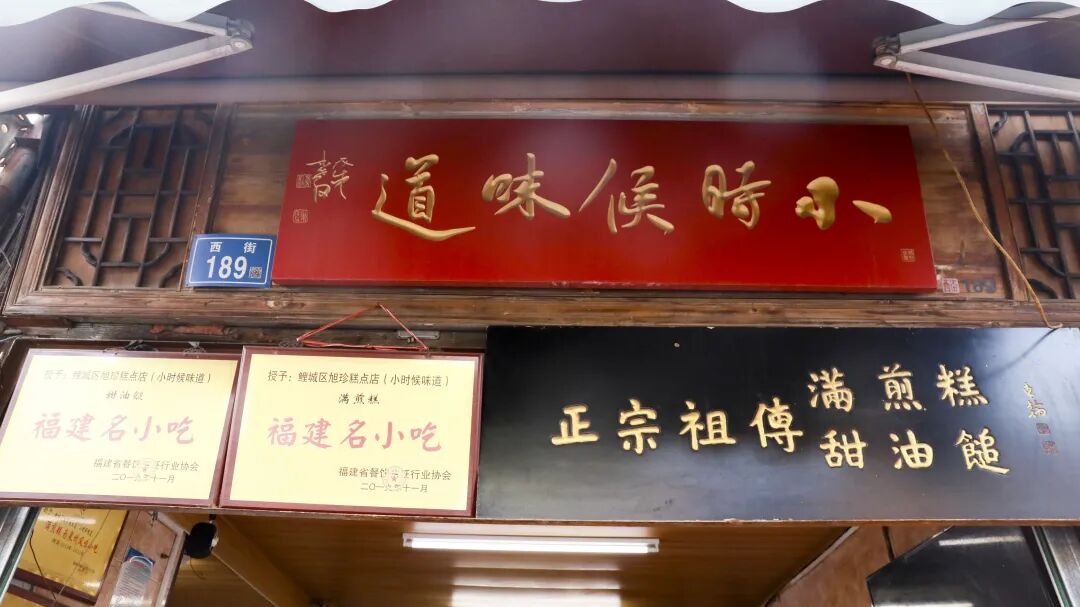 小時候味道
西街
189
授予：鲤城区旭珍糕点店（小时候味道）
甜油䭔
福建名小吃
福建省餐饮烹饪行业协会
二〇一九年十一月
授予：鲤城区旭珍糕点店（小时候味道）
满煎糕
福建名小吃
福建省餐饮烹饪行业协会
二〇一九年十一月
正宗祖傳
滿煎糕
甜油䭔
189